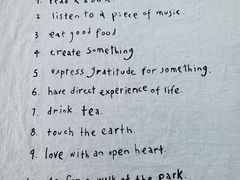 1. read a book
2 listen to a piece of music.
3 eat good food
4 create something
5 express gratitude for something.
6 have direct experience of life.
7. drink tea.
8. touch the earth.
9. love with an open heart.
go for a walk at the park.